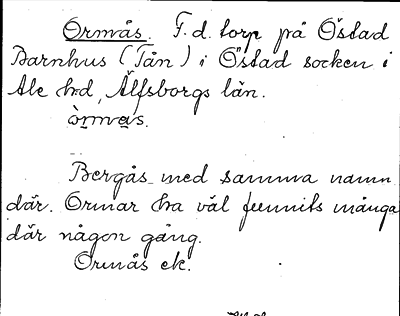 Ormås. F.d. torp på Östad
Barnhus (Tån) i Östad socken i
Ale hd, Älfsborgs län.
òrmas.
Bergås med samma namn
där. Ormar ha väl funnits många
där någon gång.
Ormås ek.